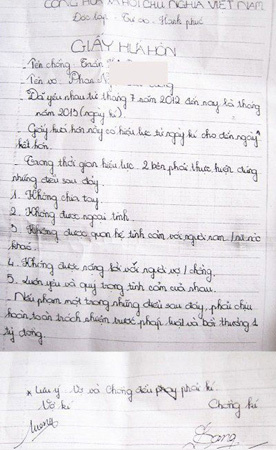 CỘNG HÒA XÃ HỘI CHỦ NGHĨA VIỆT NAM
Độc lập - Tự do - Hạnh phúc
GIẤY HỨA HÔN
- Tên chồng: Trần
- Tên vợ: Phan
- Đã yêu nhau từ tháng 7 năm 2012 đến nay là tháng
năm 2013 (ngày kí).
- Giấy hứa hôn này có hiệu lực từ ngày kí cho đến ngày
kết hôn.
- Trong thời gian hiệu lực 2 bên phải thực hiện đúng
những điều sau đây
1. Không chia tay.
2. Không được ngoại tình.
3. Không được quan hệ tình cảm với người nam / nữ nào
khác.
4. Không được nặng lời với người vợ / chồng.
5. Luôn yêu và quý trọng tình cảm của nhau.
- Nếu phạm một trong những điều sau đây, phải chịu
hoàn toàn trách nhiệm trước pháp luật và bồi thường 1
tỷ đồng.
* Lưu ý: Vợ và Chồng đều phải kí
Vợ kí
Chồng kí